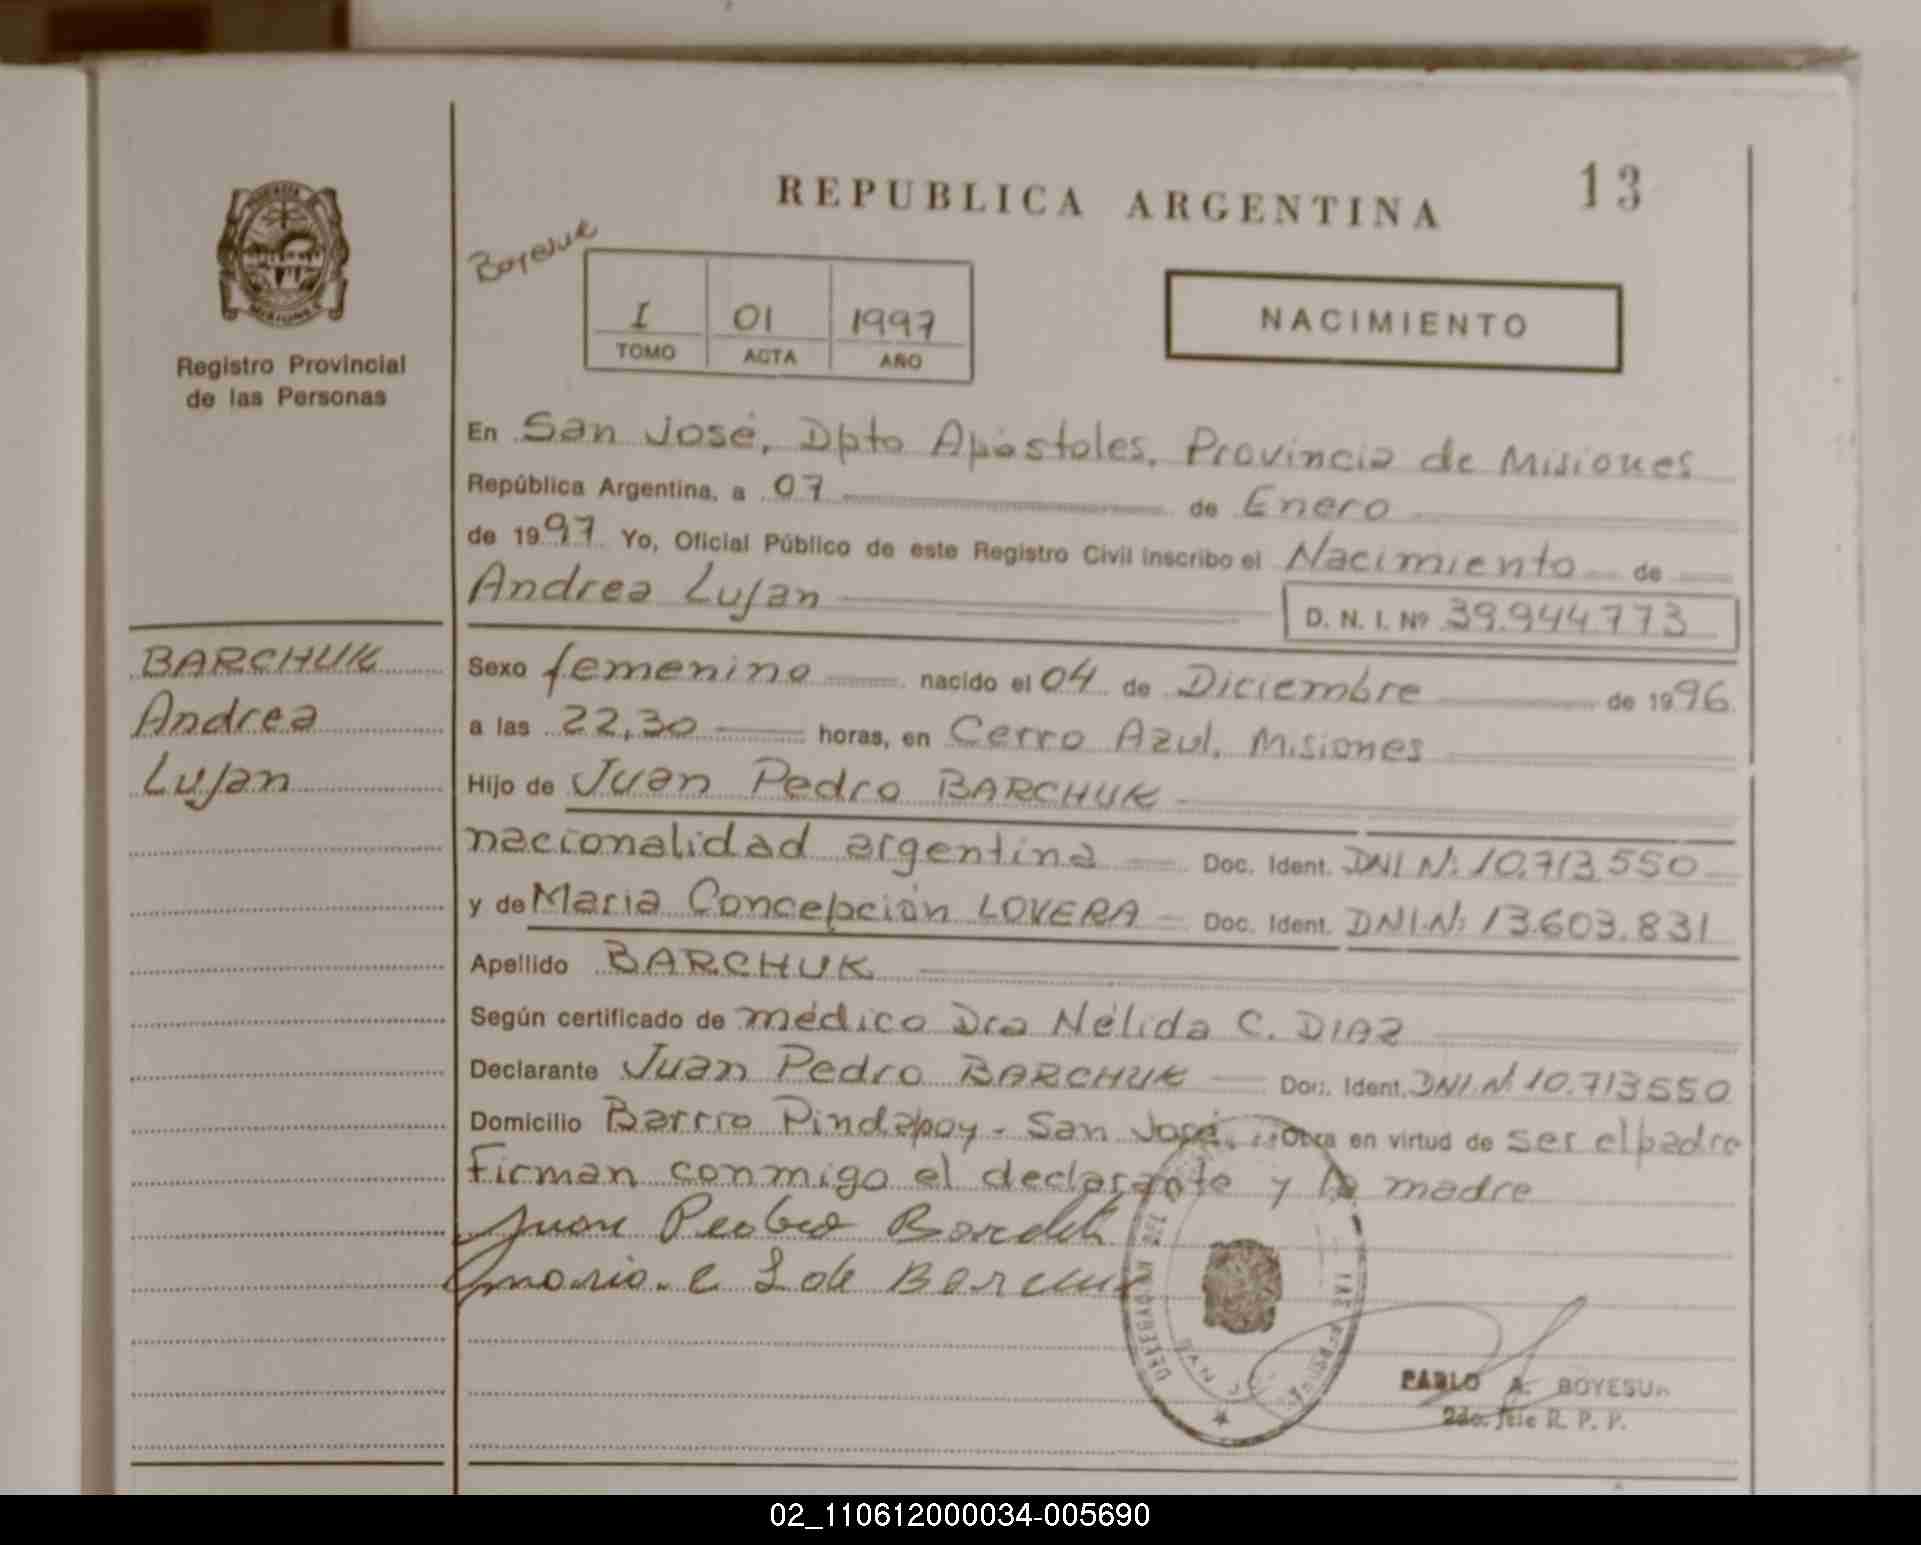 REPUBLICA ARGENTINA
13
Registro Provincial
de las Personas
I 01 1997
TOMO ACTA AÑO
NACIMIENTO
En San José, Dpto Apóstoles, Provincia de Misiones
República Argentina, a 07 de Enero
de 1997 Yo, Oficial Público de este Registro Civil inscribo el Nacimiento de
Andrea Lujan D. N. I. Nº 39.944.773
BARCHUK
Andrea
Lujan
Sexo femenino nacido el 04 de Diciembre de 1996
a las 22,30 horas, en Cerro Azul, Misiones
Hijo de Juan Pedro BARCHUK
nacionalidad argentina Doc. Ident. DNI.Nº 10.713.550
y de Maria Concepción LOVERA Doc. Ident. DNI.Nº 13.603.831
Apellido BARCHUK
Según certificado de médico Dra Nélida C. DIAZ
Declarante Juan Pedro BARCHUK Doc. Ident. DNI.Nº 10.713550
Domicilio Barrio Pindapoy - San José. Obra en virtud de ser el padre
Firman conmigo el declarante y la madre
Juan Pedro
Maria. C L de
PABLO A. BOYESUK
2do. Jefe R. P. P.
02_110612000034-005690